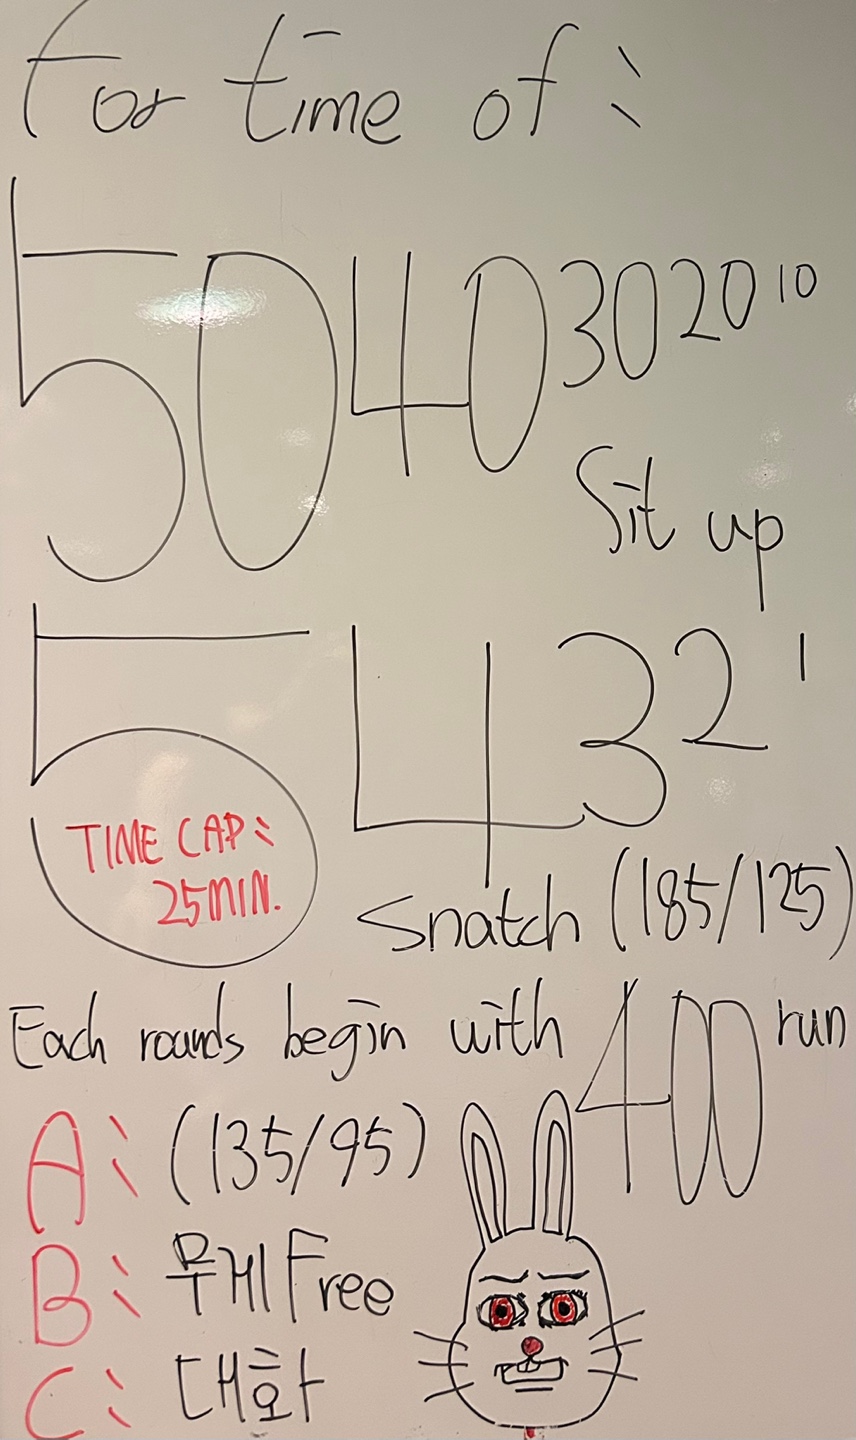 For time of:
50 40 30 20 10
Sit up
5 4 3 2 1
TIME CAP:
25MIN.
Snatch (185/125)
Each rounds begin with 400 run
A: (135/95)
B: 무게 Free
C: 대화